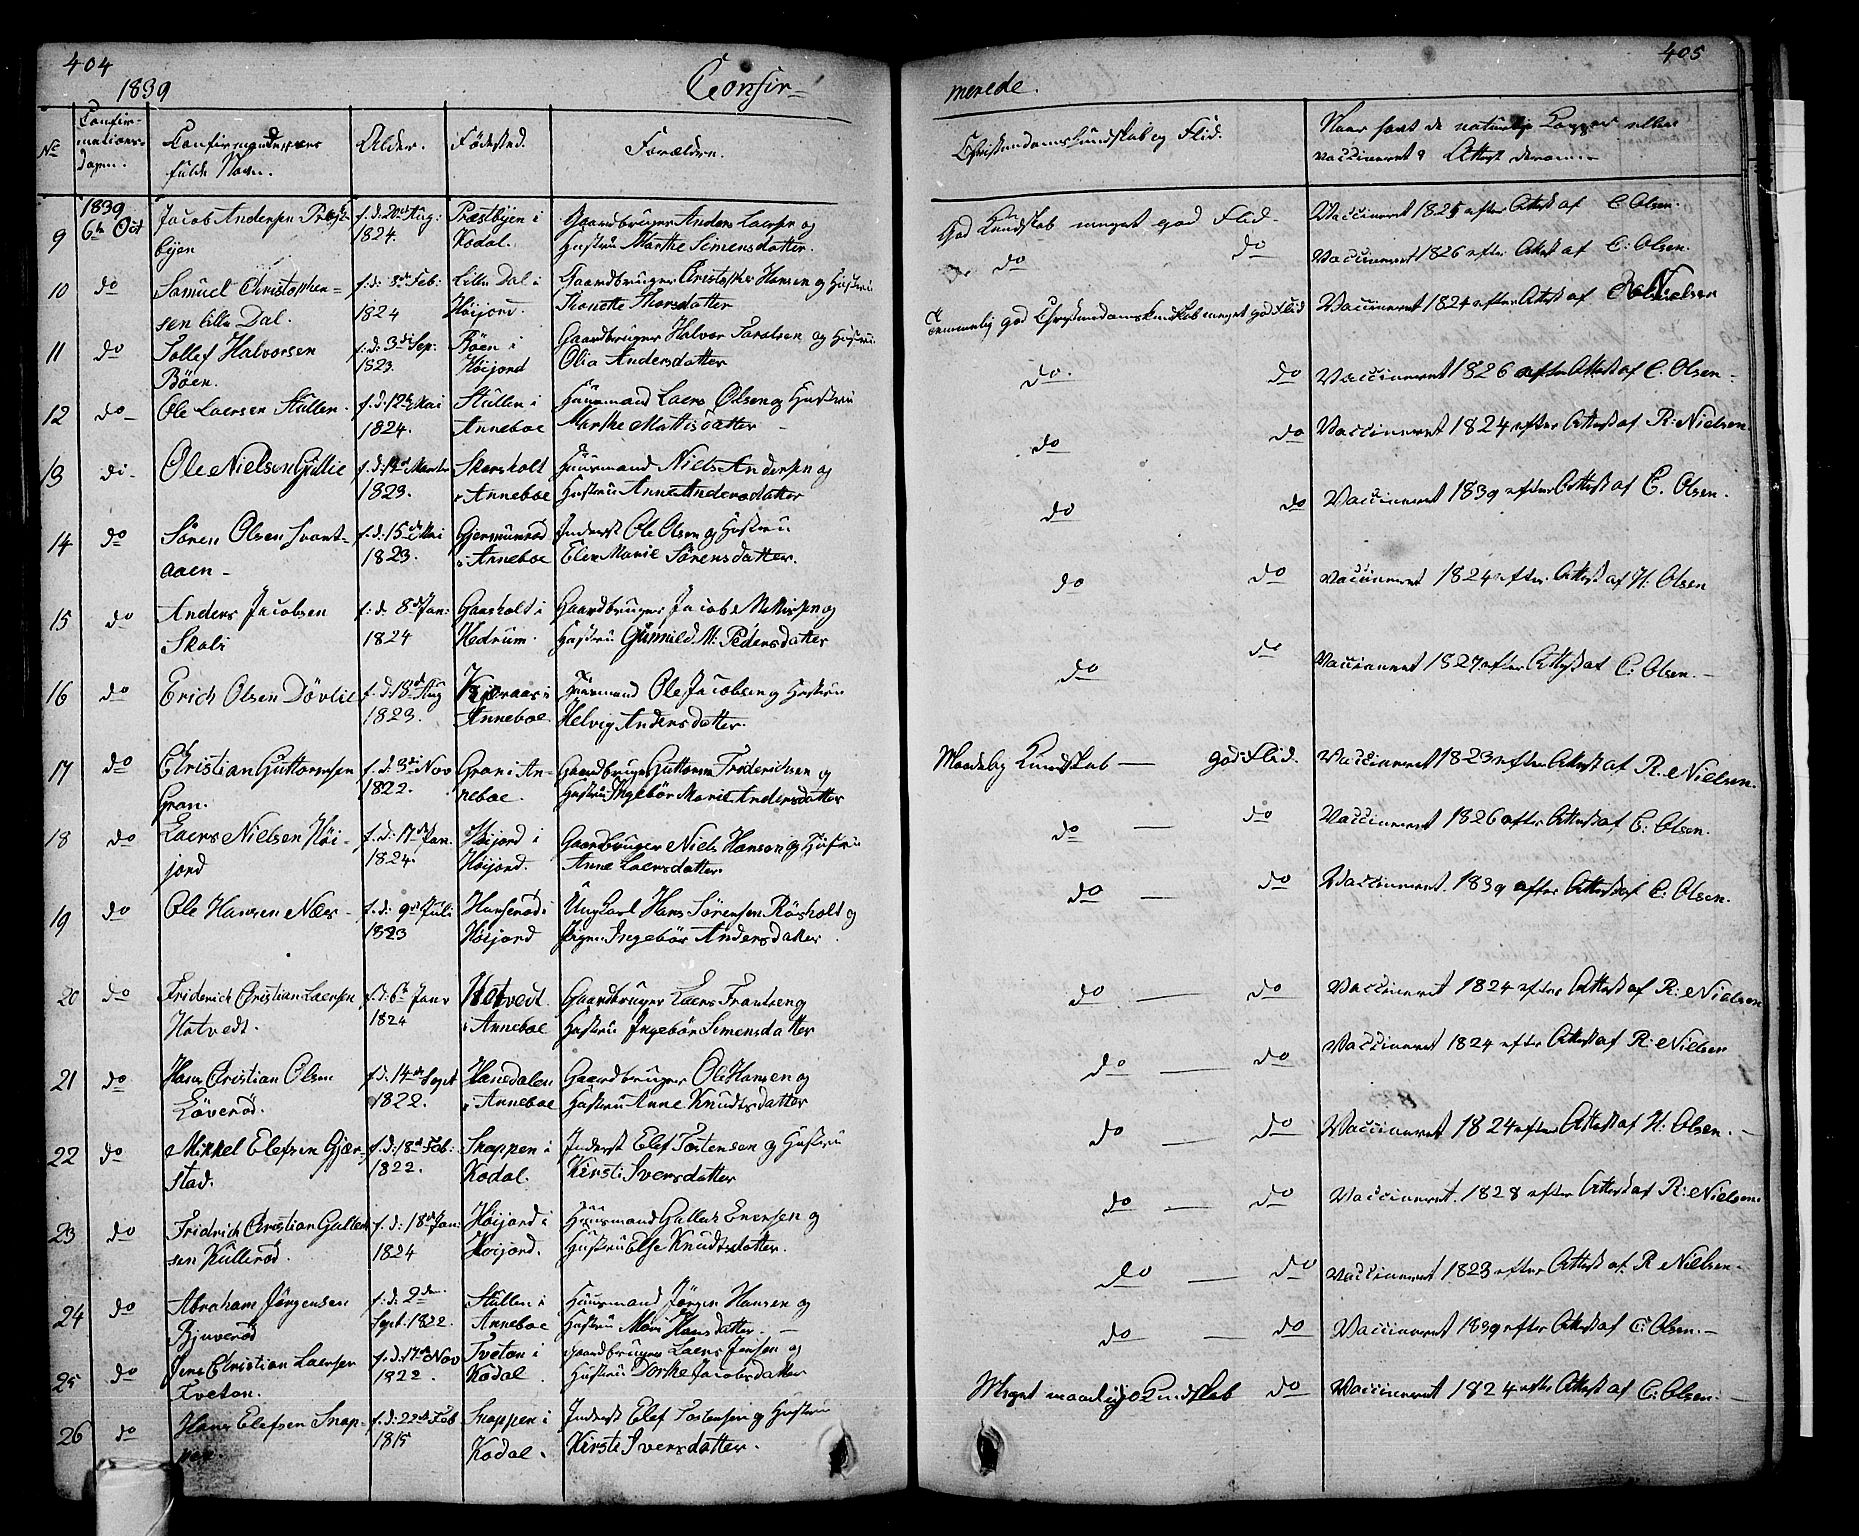 404
1839
Confir-
No
Confir-
mations-
dagen.
Confirmandernes
fulde Navn.
Alder.
Fødested.
Forældre.
1839
9
6te Oct
Jacob Andersen Præst-
byen
f. d. 20de Aug:
1824.
Præstbyen i
Kodal.
Gaardbruger Anders Laersen og
Hustru Marthe Simensdatter.
10
do
Samuel Christophersen
Lille Dal.
f. d. 8de Feb:
1824
Lille Dal i
Höijord.
Gaardbruger Christopher Hansen og Hustru
Thorsdatter
11
do
Tollef Halvorsen
Böen.
f. d. 3de Sep:
1823.
Böen i
Höijord
Gaardbruger Halvor Taralsen og Hustru
Olia Andersdatter
12
do
Ole Laersen Stullen.
f. d. 12te Mai
1824.
Stullen i
Anneboe
Huusmand Laers Olsen og Hustru
Marthe Mattisdatter
13
do
Ole Nielsen Gullie
f. d. 12te Marts
1823.
Skorsholt
i Anneboe
Huusmand Niels Andersen og
Hustru Anne Andersdatter
14
do
Sören Olsen Svart-
aaen
f. d. 15de Mai
1823.
Gjermundröd
i Anneboe
Inderst Ole Olsen og Hustru
Elen Marie Sörensdatter.
15
do
Anders Jacobsen
Skoli
f. d. 8de Jan:
1824
Gaasholt i
Hedrum.
Gaardbruger Jacob Mattissen og
Hustru Gunnild M: Pedersdatter
16
do
Erich Olsen Dövlie
f. d. 18de Aug
1823.
Kjæraas i
Anneboe.
Huusmand Ole Jacobsen og Hustru
Helvig Andersdatter.
17
do
Christian Guttormsen
Gran.
f. d. 3de Nov
1822.
Gran i An-
neboe.
Gaardbruger Guttorm Friderichsen og
Hustru Ingebör Marie Andersdatter
18
do
Laers Nielsen Höi-
jord
f. d. 17de Jan.
1824.
Höijord i
Höijord.
Gaardbruger Niels Hansen og Hustru
Anne Laersdatter.
19
do
Ole Hansen Næs
f. d. 9de Juli
1823
Hanseröd i
Höijord
Ungkarl Hans Sörensen Rösholt og
Pigen Ingebör Andersdatter
20
do
Friderich Christian Laersen
Hotvedt.
f. d. 6te Janr
1824
Hotvedt
i Anneboe
Gaardbruger Laers Frantsen og
Hustru Ingebör Simensdatter
21
do
Hans Christian Olsen
Löveröd.
f. d. 14de Sept
1822.
Hanedalen
i Anneboe
Gaardbruger Ole Hansen og
Hustru Anne Knudtsdatter
22
do
Mikkel Elefsen Gjær-
stad.
f. d. 18de Feb:
1822.
Snappen i
Kodal.
Inderst Elef Tostensen og Hustru
Kirsti Iversdatter
23
do
Fridrich Christian Gullek-
sen Kulleröd.
f. d. 18de Jan:
1824
Höijord i
Höijord.
Huusmand Gullek Evensen og
Hustru Else Knudtsdatter.
24
do
Abraham Jörgensen
Bjuveröd
f. d. 2den
Sept: 1822.
Stullen i
Anneboe
Huusmand Jörgen Hansen og
Hustru Mari Hansdatter.
25
do
Jens Christian Laersen
Tveton.
f. d. 17de Nov
1822.
Tveton i
Kodal
Gaardbruger Laers Jensen og
Hustru Dorthe Jacobsdatter
26
do
Hans Elefsen Snap-
pen.
f. d. 22de Feb
1815
Snappen i
Kodal.
Inderst Elef Tostensen og Hustru
Kirsti Iversdatter.
405
merede.
Christendomskundskab og Flid.
Naar havt de naturlige Kopper eller
vaccineret? Attest derom
God Kundskab meget god Flid.
Vaccineret 1825 efter Attest af C Olsen.
do
do
Vaccineret 1826 efter Attest af C: Olsen.
Temmelig god Christendomskundskab meget god Flid
Vaccineret 1824 efter Attest af
do.
do
Vaccineret 1826 efter Attest af C. Olsen
do
do
Vaccineret 1824 efter Attest af R: Nielsen
do
do
Vaccineret 1839 efter Attest af C. Olsen.
do
do
Vaccineret 1824 efter Attest af H. Olsen
do
do
Vaccineret 1827 efter Attest af C: Olsen.
Maadelig Kundskab — god Flid.
Vaccineret 1823 efter Attest af R. Nielsen.
do —
do
Vaccineret 1826 efter Attest af C: Olsen.
do —
do
Vaccineret 1839 efter Attest af C: Olsen.
do —
do
Vaccineret 1824 efter Attest af R: Nielsen
do —
do
Vaccineret 1824 efter Attest af R: Nielsen
do —
do
Vaccineret 1824 efter Attest af H. Olsen.
do —
do
Vaccineret 1828 efter Attest af R: Nielsen.
do —
do
Vaccineret 1823 efter Attest af R Nielsen.
do —
do
Vaccineret 1839 efter Attest af C: Olsen.
Meget maadelig Kundskab
do
Vaccineret 1824 efter Attest af C: Olsen.